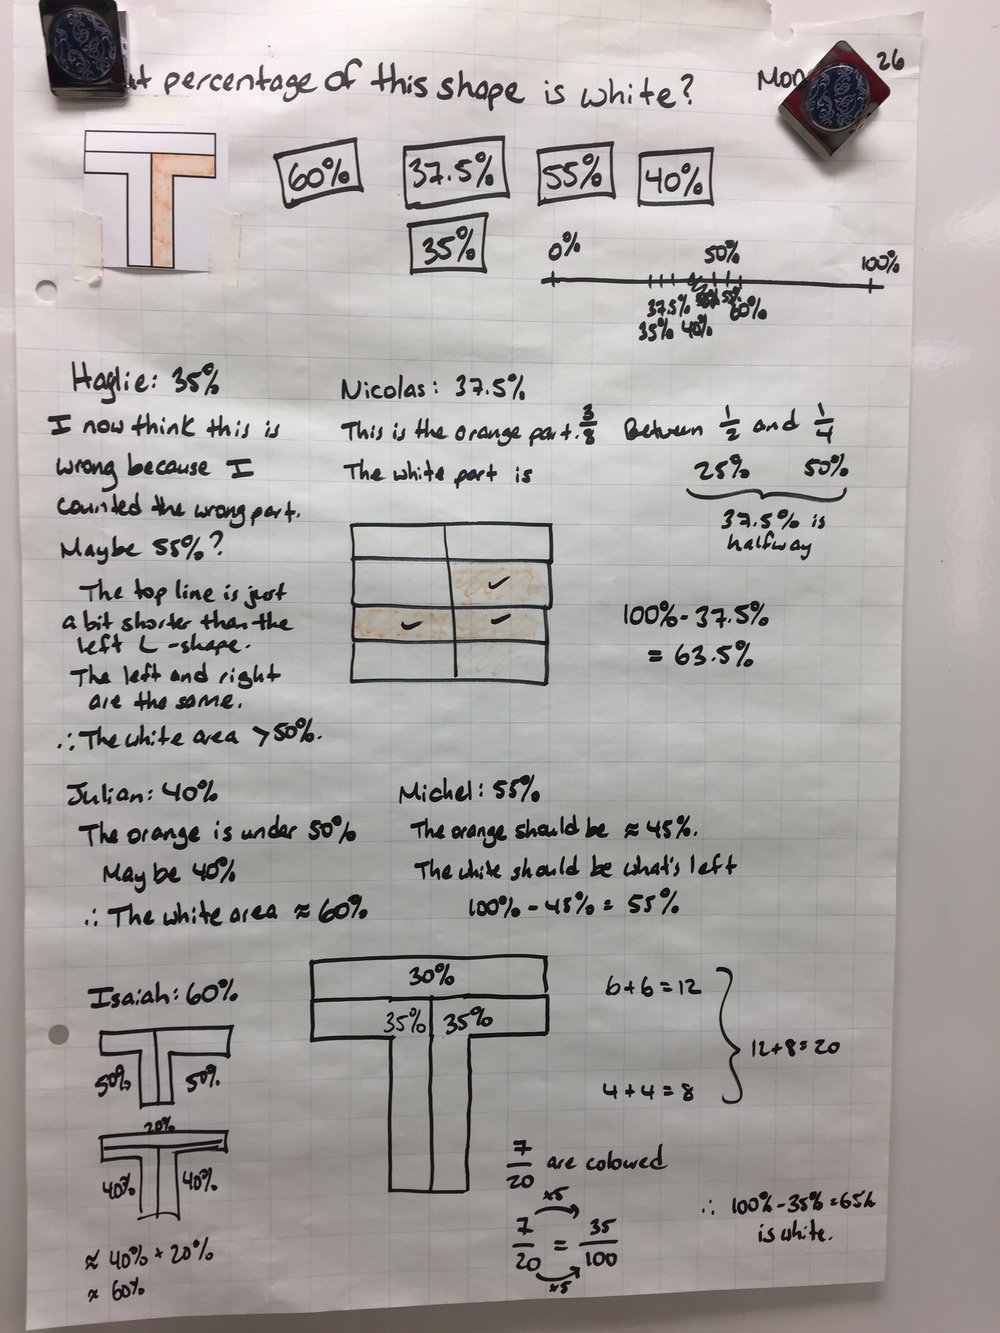 percentage of this shape is white?
26
60% 37.5% 55% 40%
35%
0% 50% 100%
37.5% 55% 60%
35% 40%
Haglie: 35%
I now think this is
wrong because I
counted the wrong part.
Maybe 55%?
The top line is just
a bit shorter than the
left L-shape.
The left and right
are the same.
∴ The white area > 50%.
Nicolas: 37.5%
This is the orange part. 3/8
The white part is
Between 1/2 and 1/4
25% 50%
37.5% is
halfway
100% - 37.5%
= 63.5%
Julian: 40%
The orange is under 50%
Maybe 40%
∴ The white area ≈ 60%
Michel: 55%
The orange should be ≈ 45%.
The white should be what's left
100% - 45% = 55%
Isaiah: 60%
50% 50%
20%
40% 40%
≈ 40% + 20%
≈ 60%
30%
35% 35%
6+6=12
12+8=20
4+4=8
7/20 are coloured
×5
7/20 = 35/100
×5
∴ 100% - 35% = 65%
is white.